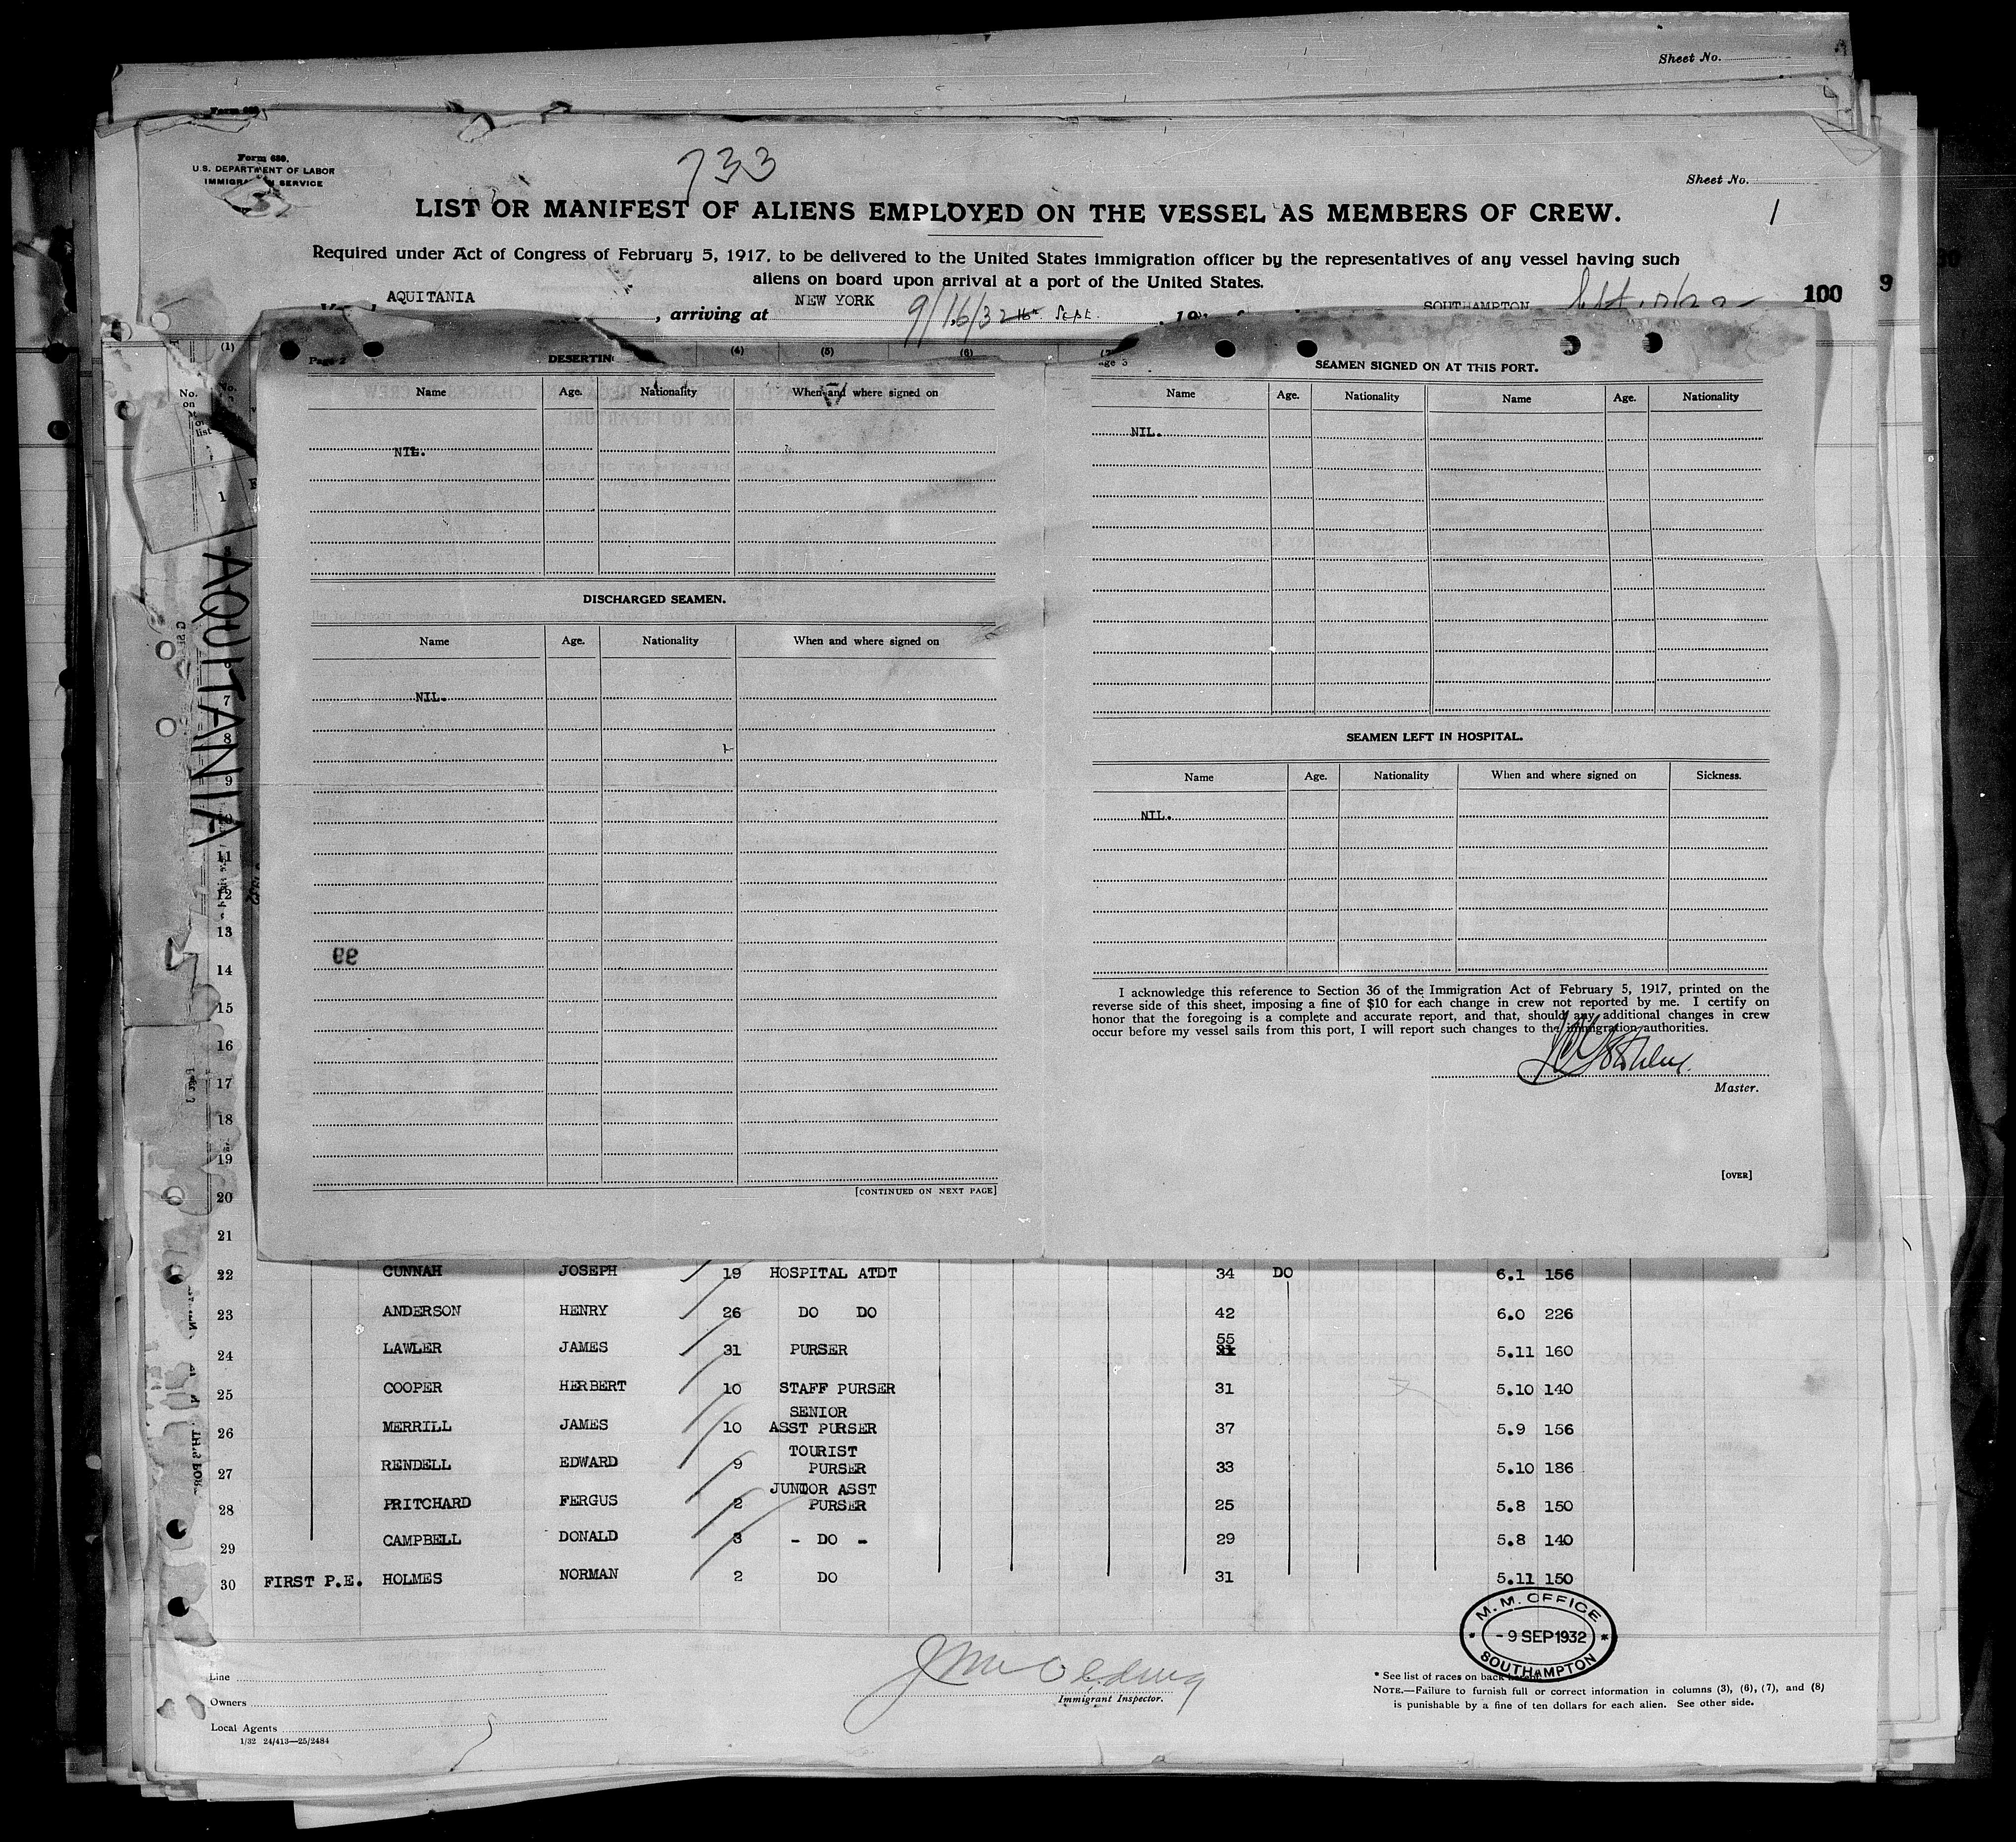 Sheet No.
Form 689.
U.S. DEPARTMENT OF LABOR
IMMIGRATION SERVICE
733
Sheet No.
1
LIST OR MANIFEST OF ALIENS EMPLOYED ON THE VESSEL AS MEMBERS OF CREW.
Required under Act of Congress of February 5, 1917, to be delivered to the United States immigration officer by the representatives of any vessel having such
aliens on board upon arrival at a port of the United States.
AQUITANIA , arriving at NEW YORK 9/16/32 16th Sept. , 19 SOUTHAMPTON 100
9
(1) (4) (5) (6)
No. on list
AQUITANIA
Page 2
DESERTIN
Name Age. Nationality When and where signed on
NIL.
DISCHARGED SEAMEN.
Name Age. Nationality When and where signed on
NIL.
99
[CONTINUED ON NEXT PAGE]
age 3
SEAMEN SIGNED ON AT THIS PORT.
Name Age. Nationality Name Age. Nationality
NIL.
SEAMEN LEFT IN HOSPITAL.
Name Age. Nationality When and where signed on Sickness.
NIL.
I acknowledge this reference to Section 36 of the Immigration Act of February 5, 1917, printed on the
reverse side of this sheet, imposing a fine of $10 for each change in crew not reported by me. I certify on
honor that the foregoing is a complete and accurate report, and that, should any additional changes in crew
occur before my vessel sails from this port, I will report such changes to the immigration authorities.
Master.
[OVER]
1
7
8
9
10
11
12
13
14
15
16
17
18
19
20
21
22 CUNNAH JOSEPH 19 HOSPITAL ATDT 34 DO 6.1 156
23 ANDERSON HENRY 26 DO DO 42 6.0 226
24 LAWLER JAMES 31 PURSER 55 5.11 160
25 COOPER HERBERT 10 STAFF PURSER 31 5.10 140
SENIOR
26 MERRILL JAMES 10 ASST PURSER 37 5.9 156
TOURIST
27 RENDELL EDWARD 9 PURSER 33 5.10 186
JUNIOR ASST
28 PRITCHARD FERGUS 2 PURSER 25 5.8 150
29 CAMPBELL DONALD 3 - DO - 29 5.8 140
30 FIRST P.E. HOLMES NORMAN 2 DO 31 5.11 150
M. M. OFFICE
- 9 SEP 1932
SOUTHAMPTON
Line
Owners
Local Agents
1/32 24/413—25/2484
Immigrant Inspector.
* See list of races on back hereof.
NOTE.—Failure to furnish full or correct information in columns (3), (6), (7), and (8)
is punishable by a fine of ten dollars for each alien. See other side.